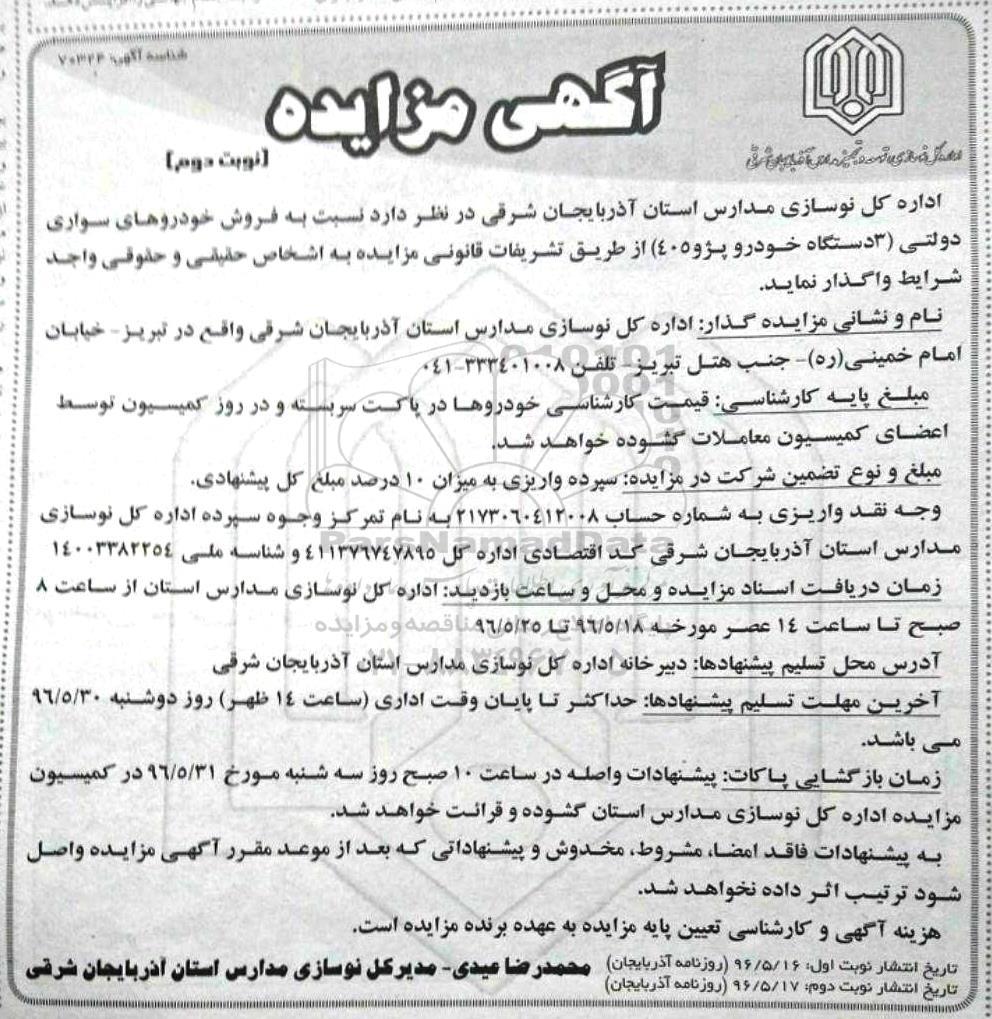 شناسه آگهی: ۷۰۳۲۴
آگهی مزایده
(نوبت دوم)
اداره کل نوسازی، توسعه و تجهیز مدارس آذربایجان شرقی
اداره کل نوسازی مدارس استان آذربایجان شرقی در نظر دارد نسبت به فروش خودروهای سواری
دولتی (۳دستگاه خودرو پژو۴۰۵) از طریق تشریفات قانونی مزایده به اشخاص حقیقی و حقوقی واجد
شرایط واگذار نماید.
نام و نشانی مزایده گذار: اداره کل نوسازی مدارس استان آذربایجان شرقی واقع در تبریز- خیابان
امام خمینی(ره)- جنب هتل تبریز- تلفن ۳۳۳۴۰۱۰۰۸-۰۴۱
مبلغ پایه کارشناسی: قیمت کارشناسی خودروها در پاکت سربسته و در روز کمیسیون توسط
اعضای کمیسیون معاملات گشوده خواهد شد.
مبلغ و نوع تضمین شرکت در مزایده: سپرده واریزی به میزان ۱۰ درصد مبلغ کل پیشنهادی.
وجه نقد واریزی به شماره حساب ۲۱۷۳۰۶۰۴۱۲۰۰۸ به نام تمرکز وجوه سپرده اداره کل نوسازی
مدارس استان آذربایجان شرقی کد اقتصادی اداره کل ۴۱۱۳۷۶۷۴۷۸۹۵ و شناسه ملی ۱۴۰۰۳۳۸۲۲۵۴
ParsNamadData
زمان دریافت اسناد مزایده و محل و ساعت بازدید: اداره کل نوسازی مدارس استان از ساعت ۸
صبح تا ساعت ۱۴ عصر مورخه ۹۶/۵/۱۸ تا ۹۶/۵/۲۵
آدرس محل تسلیم پیشنهادها: دبیرخانه اداره کل نوسازی مدارس استان آذربایجان شرقی
آخرین مهلت تسلیم پیشنهادها: حداکثر تا پایان وقت اداری (ساعت ۱۴ ظهر) روز دوشنبه ۹۶/۵/۳۰
می باشد.
زمان بازگشایی پاکات: پیشنهادات واصله در ساعت ۱۰ صبح روز سه شنبه مورخ ۹۶/۵/۳۱ در کمیسیون
مزایده اداره کل نوسازی مدارس استان گشوده و قرائت خواهد شد.
به پیشنهادات فاقد امضا، مشروط، مخدوش و پیشنهاداتی که بعد از موعد مقرر آگهی مزایده واصل
شود ترتیب اثر داده نخواهد شد.
هزینه آگهی و کارشناسی تعیین پایه مزایده به عهده برنده مزایده است.
تاریخ انتشار نوبت اول: ۹۶/۵/۱۶ (روزنامه آذربایجان)
تاریخ انتشار نوبت دوم: ۹۶/۵/۱۷ (روزنامه آذربایجان)
محمدرضا عیدی- مدیرکل نوسازی مدارس استان آذربایجان شرقی